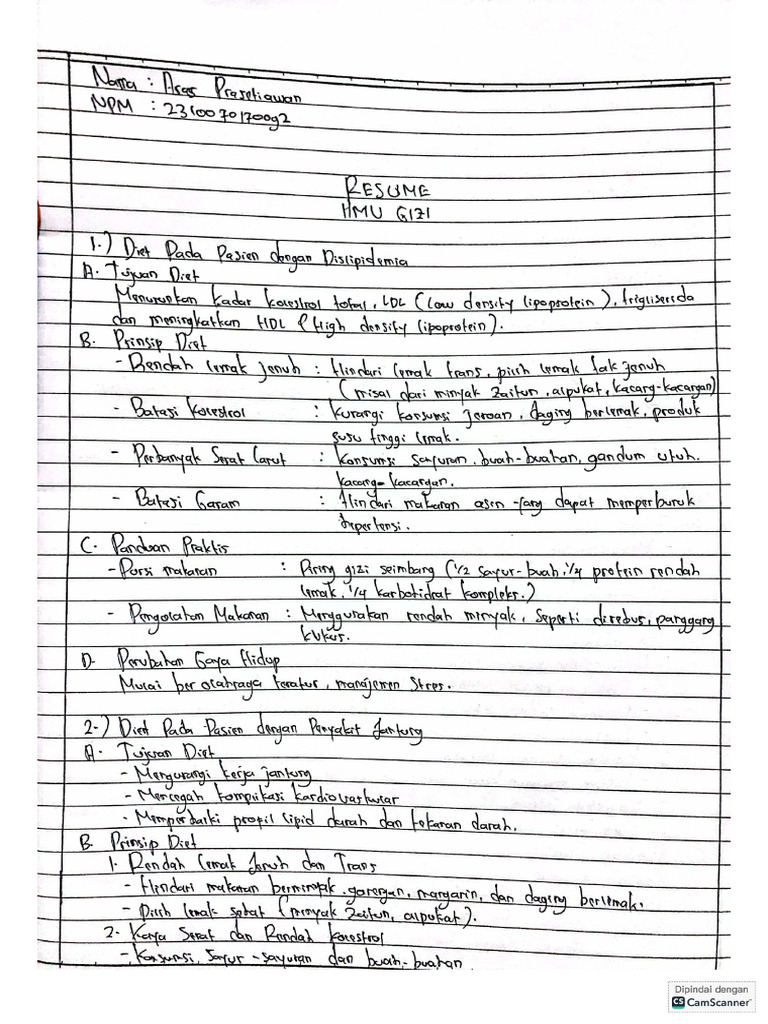 Nama : Aras Prasetiawan
NPM : 2310070170092
RESUME
HMU GIZI
1.) Diet Pada Pasien dengan Dislipidemia
A. Tujuan Diet
Menurunkan kadar kolestrol total, LDL (low density lipoprotein), trigliserida
dan meningkatkan HDL (High density lipoprotein).
B. Prinsip Diet
- Rendah lemak jenuh : Hindari lemak trans, pilih lemak tak jenuh
(misal dari minyak zaitun, alpukat, kacang-kacangan)
- Batasi kolestrol : kurangi konsumsi jeroan, daging berlemak, produk
susu tinggi lemak.
- Perbanyak Serat Larut : Konsumsi sayuran, buah-buahan, gandum utuh.
kacang-kacangan.
- Batasi Garam : Hindari makanan asin yang dapat memperburuk
hipertensi.
C. Panduan Praktis
- Porsi makanan : Piring gizi seimbang (1/2 sayur-buah, 1/4 protein rendah
lemak, 1/4 karbohidrat kompleks.)
- Pengolahan Makanan : Menggunakan rendah minyak, seperti direbus, panggang
kukus.
D. Perubahan Gaya Hidup
Mulai berolahraga teratur, manajemen stres.
2.) Diet Pada Pasien dengan Penyakit Jantung
A. Tujuan Diet
- Mengurangi kerja jantung
- Mencegah komplikasi kardiovaskular
- Memperbaiki profil lipid darah dan tekanan darah.
B. Prinsip Diet
1. Rendah Lemak Jenuh dan Trans
- Hindari makanan berminyak, gorengan, margarin, dan daging berlemak.
- Pilih lemak sehat (minyak zaitun, alpukat).
2. Kaya Serat dan Rendah kolestrol
- Konsumsi, sayur-sayuran dan buah-buahan
Dipindai dengan
CS CamScanner